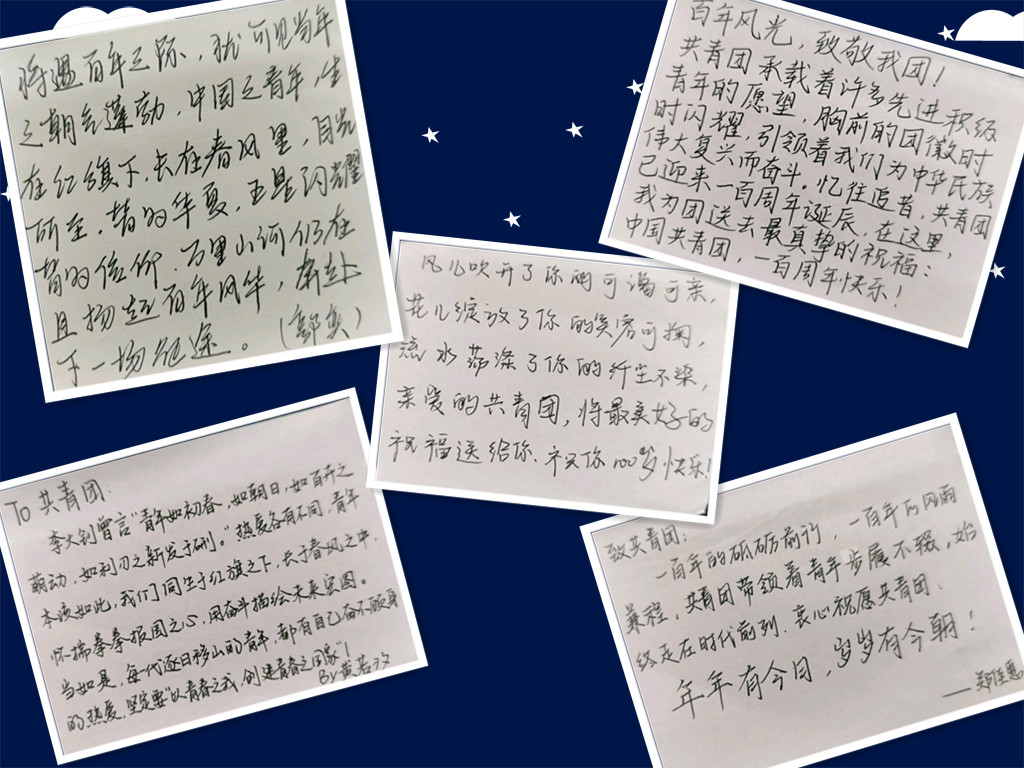 将遇百年之际，犹可见当年
之朝气蓬勃，中国之青年，生
在红旗下，长在春风里，目光
所至，皆为华夏，五星闪耀
皆为信仰，万里山河仍在
且扬起百年风华，奔赴
下一场征途。
百年风光，致敬我团！
共青团承载着许多先进积级
青年的愿望，胸前的团徽时
时闪耀，引领着我们为中华民族
伟大复兴而奋斗。忆往追昔，共青团
已迎来一百周年诞辰，在这里，
我为团送去最真挚的祝福：
中国共青团，一百周年快乐！
风儿吹开了你的可渴可亲，
花儿绽放了你的笑容可掬，
流水荡涤了你的纤尘不染，
亲爱的共青团，将最美好的
祝福送给你、祝你100岁快乐！
To 共青团：
李大钊曾言“青年如初春，如朝日，如百卉之
萌动，如利刃之新发于硎。”热爱各有不同，青年
本该如此，我们同生于红旗之下，长于春风之中，
怀揣拳拳报国之心，用奋斗描绘未来宏图。
当如是，每代逐日移山的青年，都有自己奋不顾身
的热爱，坚定要“以青春之我，创造青春之国家”！
By 黄若
致共青团：
一百年的砥砺前行，一百年的风雨
兼程，共青团带领着青年步履不辍，始
终走在时代前列，衷心祝愿共青团：
年年有今日，岁岁有今朝！
——郑佳惠